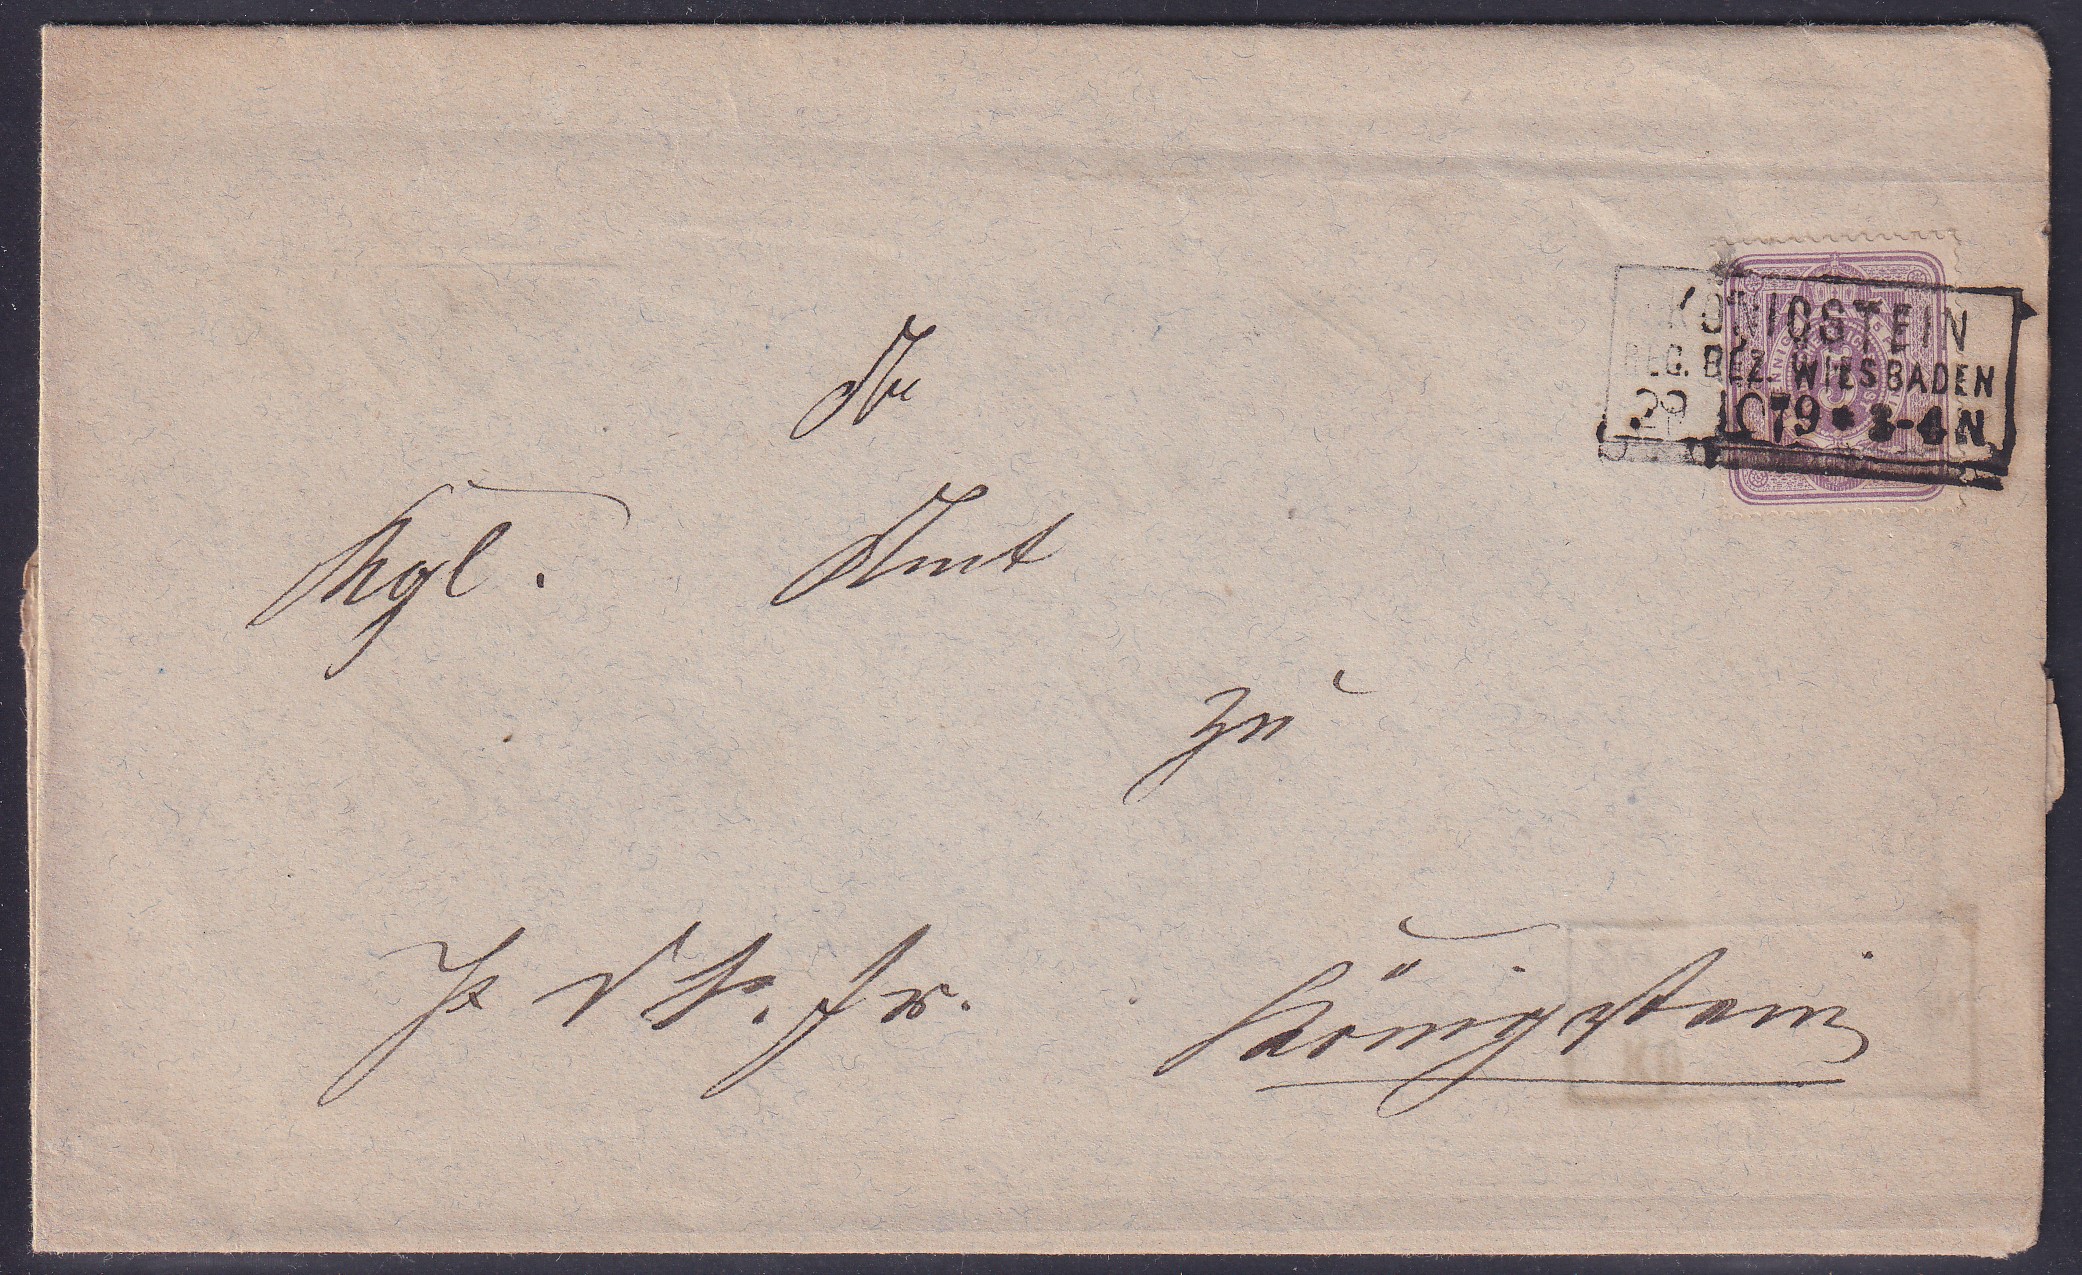 KÖNIGSTEIN
REG. BEZ. WIESBADEN
29 10 79 * 3-4 N
An
Kgl. Amt
zu
Königstein